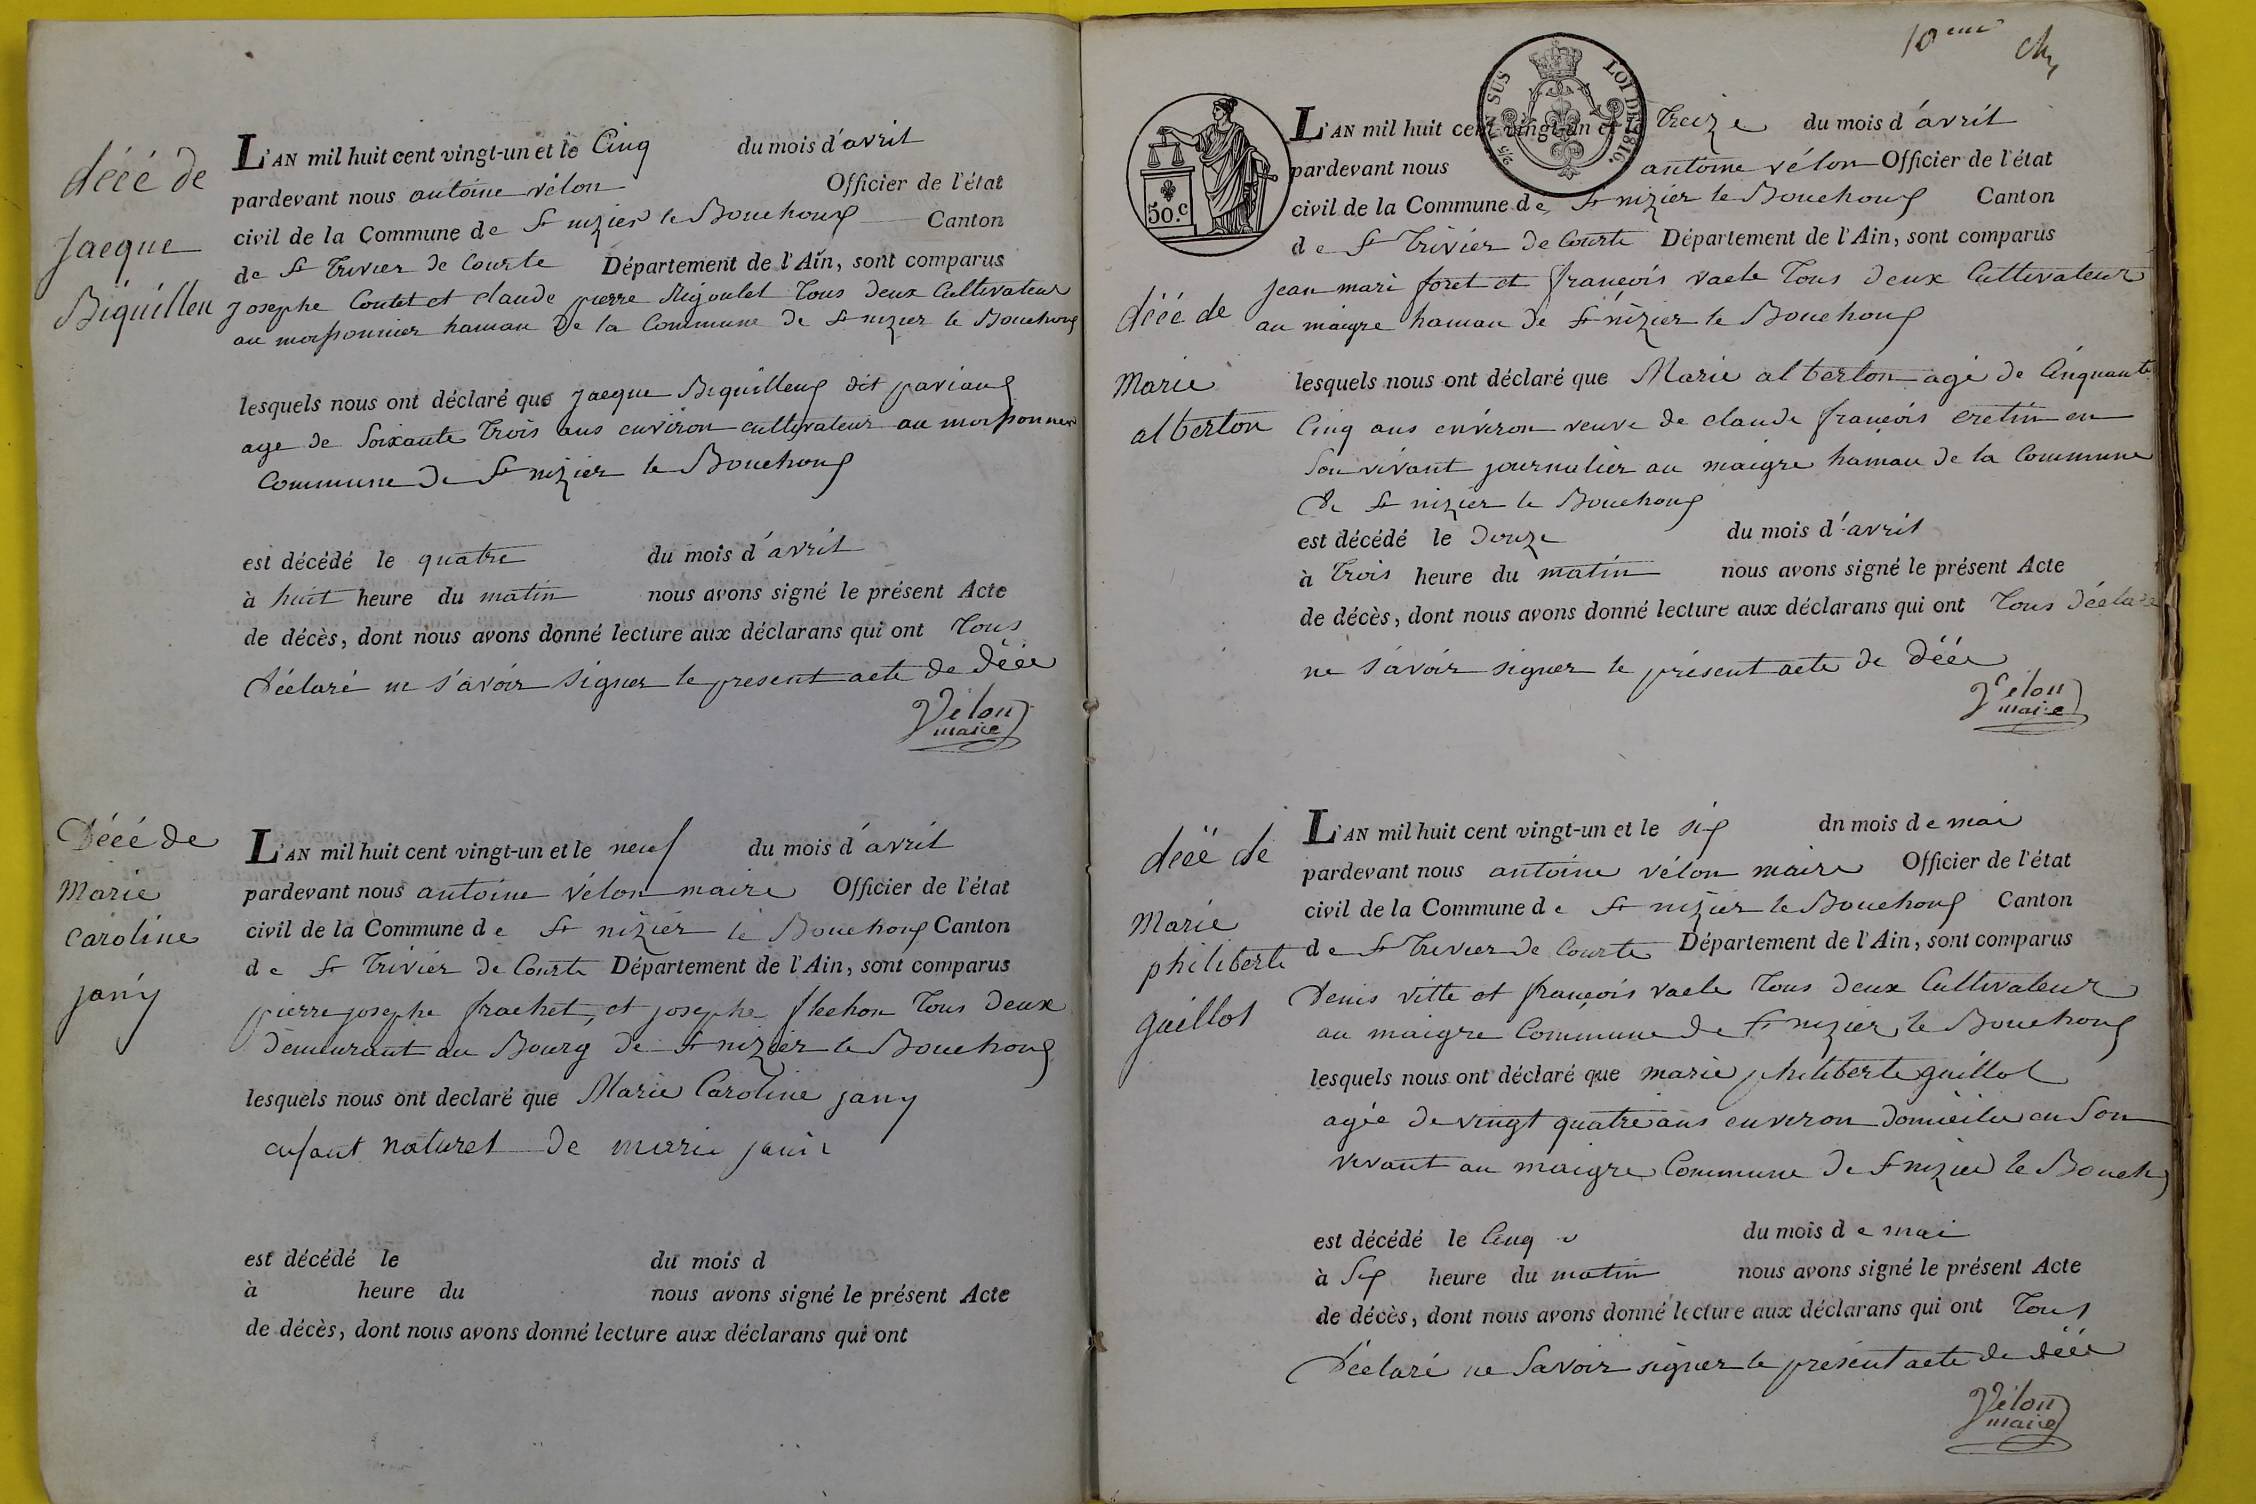 décé de
Jacque
Biquilleu
L'AN mil huit cent vingt-un et le Cinq du mois d'avril
pardevant nous antoine vélon Officier de l'état
civil de la Commune de St nizier le Bouchoux Canton
de St Trivier de Courte Département de l'Ain, sont comparus
Josephe Coutet et claude pierre Rigoulet Tous deux Cultivateur
au moissonnier hamau de la Commune de St nizier le Bouchoux
lesquels nous ont déclaré que Jacque Biquilleux dit paviaux
age de Soixante Trois ans environ cultivateur au moissonnier
Commune de St nizier le Bouchoux
est décédé le quatre du mois d'avril
à huit heure du matin nous avons signé le présent Acte
de décès, dont nous avons donné lecture aux déclarans qui ont Tous
Déclaré ne s'avoir signer le present acte de décé
Vélon
maire
Décé de
Marie
Caroline
jany
L'AN mil huit cent vingt-un et le neuf du mois d'avril
pardevant nous antoine vélon maire Officier de l'état
civil de la Commune de St nizier le Bouchoux Canton
de St Trivier de Courte Département de l'Ain, sont comparus
pierre josephe frachet, et josephe flechon Tous deux
Demeurant au Bourg de St nizier le Bouchoux
lesquels nous ont declaré que Marie Caroline jany
enfant naturel de marie jani
est décédé le du mois d
à heure du nous avons signé le présent Acte
de décès, dont nous avons donné lecture aux déclarans qui ont
10eme
EN SUS LOI DE 1816.
50.c
L'AN mil huit cent vingt-un et le Treize du mois d'avril
pardevant nous antoine vélon Officier de l'état
civil de la Commune de St nizier le Bouchoux Canton
de St Trivier de Courte Département de l'Ain, sont comparus
Jean mari foret et françois vacle Tous deux Cultivateur
au maigre hamau de St nizier le Bouchoux
décé de
Marie
alberton
lesquels nous ont déclaré que Marie alberton agé de Cinquante
Cinq ans environ veuve de claude françois cretin en
Son vivant journalier au maigre hamau de la Commune
de St nizier le Bouchoux
est décédé le Douze du mois d'avril
à Trois heure du matin nous avons signé le présent Acte
de décès, dont nous avons donné lecture aux déclarans qui ont Tous Déclaré
ne s'avoir signer le présent acte de décé
Vélon
maire
décé de
Marie
philiberte
guillot
L'AN mil huit cent vingt-un et le six dn mois de mai
pardevant nous antoine vélon maire Officier de l'état
civil de la Commune de St nizier le Bouchoux Canton
de St Trivier de Courte Département de l'Ain, sont comparus
Denis vitte et françois vacle Tous deux Cultivateur
au maigre Commune de St nizier le Bouchoux
lesquels nous ont déclaré que marie philiberte guillot
agée de vingt quatre ans environ domicilié en Son
vivant au maigre Commune de St nizier le Bouch
est décédé le Cinq du mois de mai
à Six heure du matin nous avons signé le présent Acte
de décès, dont nous avons donné lecture aux déclarans qui ont Tous
Déclaré ne Savoir signer le présent acte de décé
Vélon
maire